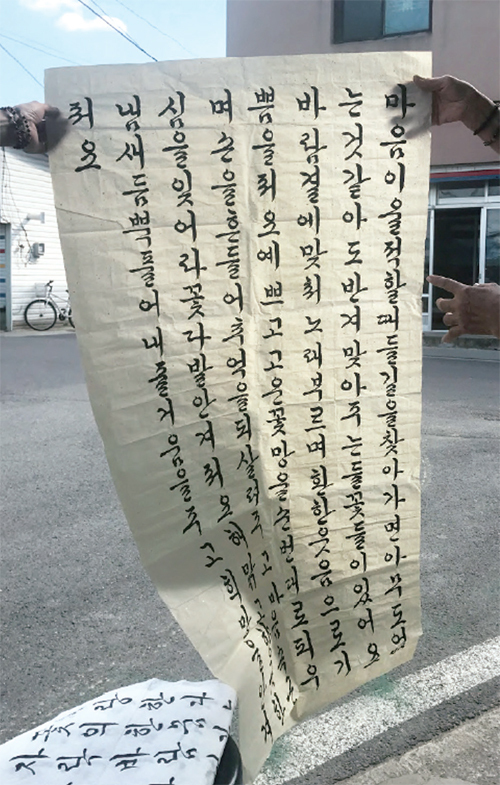 마음이울적할때들길을찾아가면아무도없
는것같아도반겨맞아주는들꽃들이있어요
바람결에맞춰노래부르며환한웃음으로기
쁨을줘요예쁘고고운꽃망울순번대로피우
며손을흔들어추억을되살려주고마음속
심을잊어라꽃다발안겨줘요해맑고
냄새듬뿍풀어내즐거움을주고희망을안겨
줘요